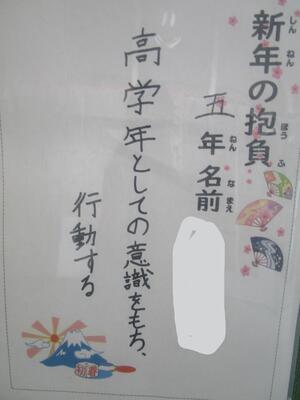 新年の抱負
しんねん ほうふ
五年 名前
ねん なまえ
高学年としての意識をもち、
行動する
初春